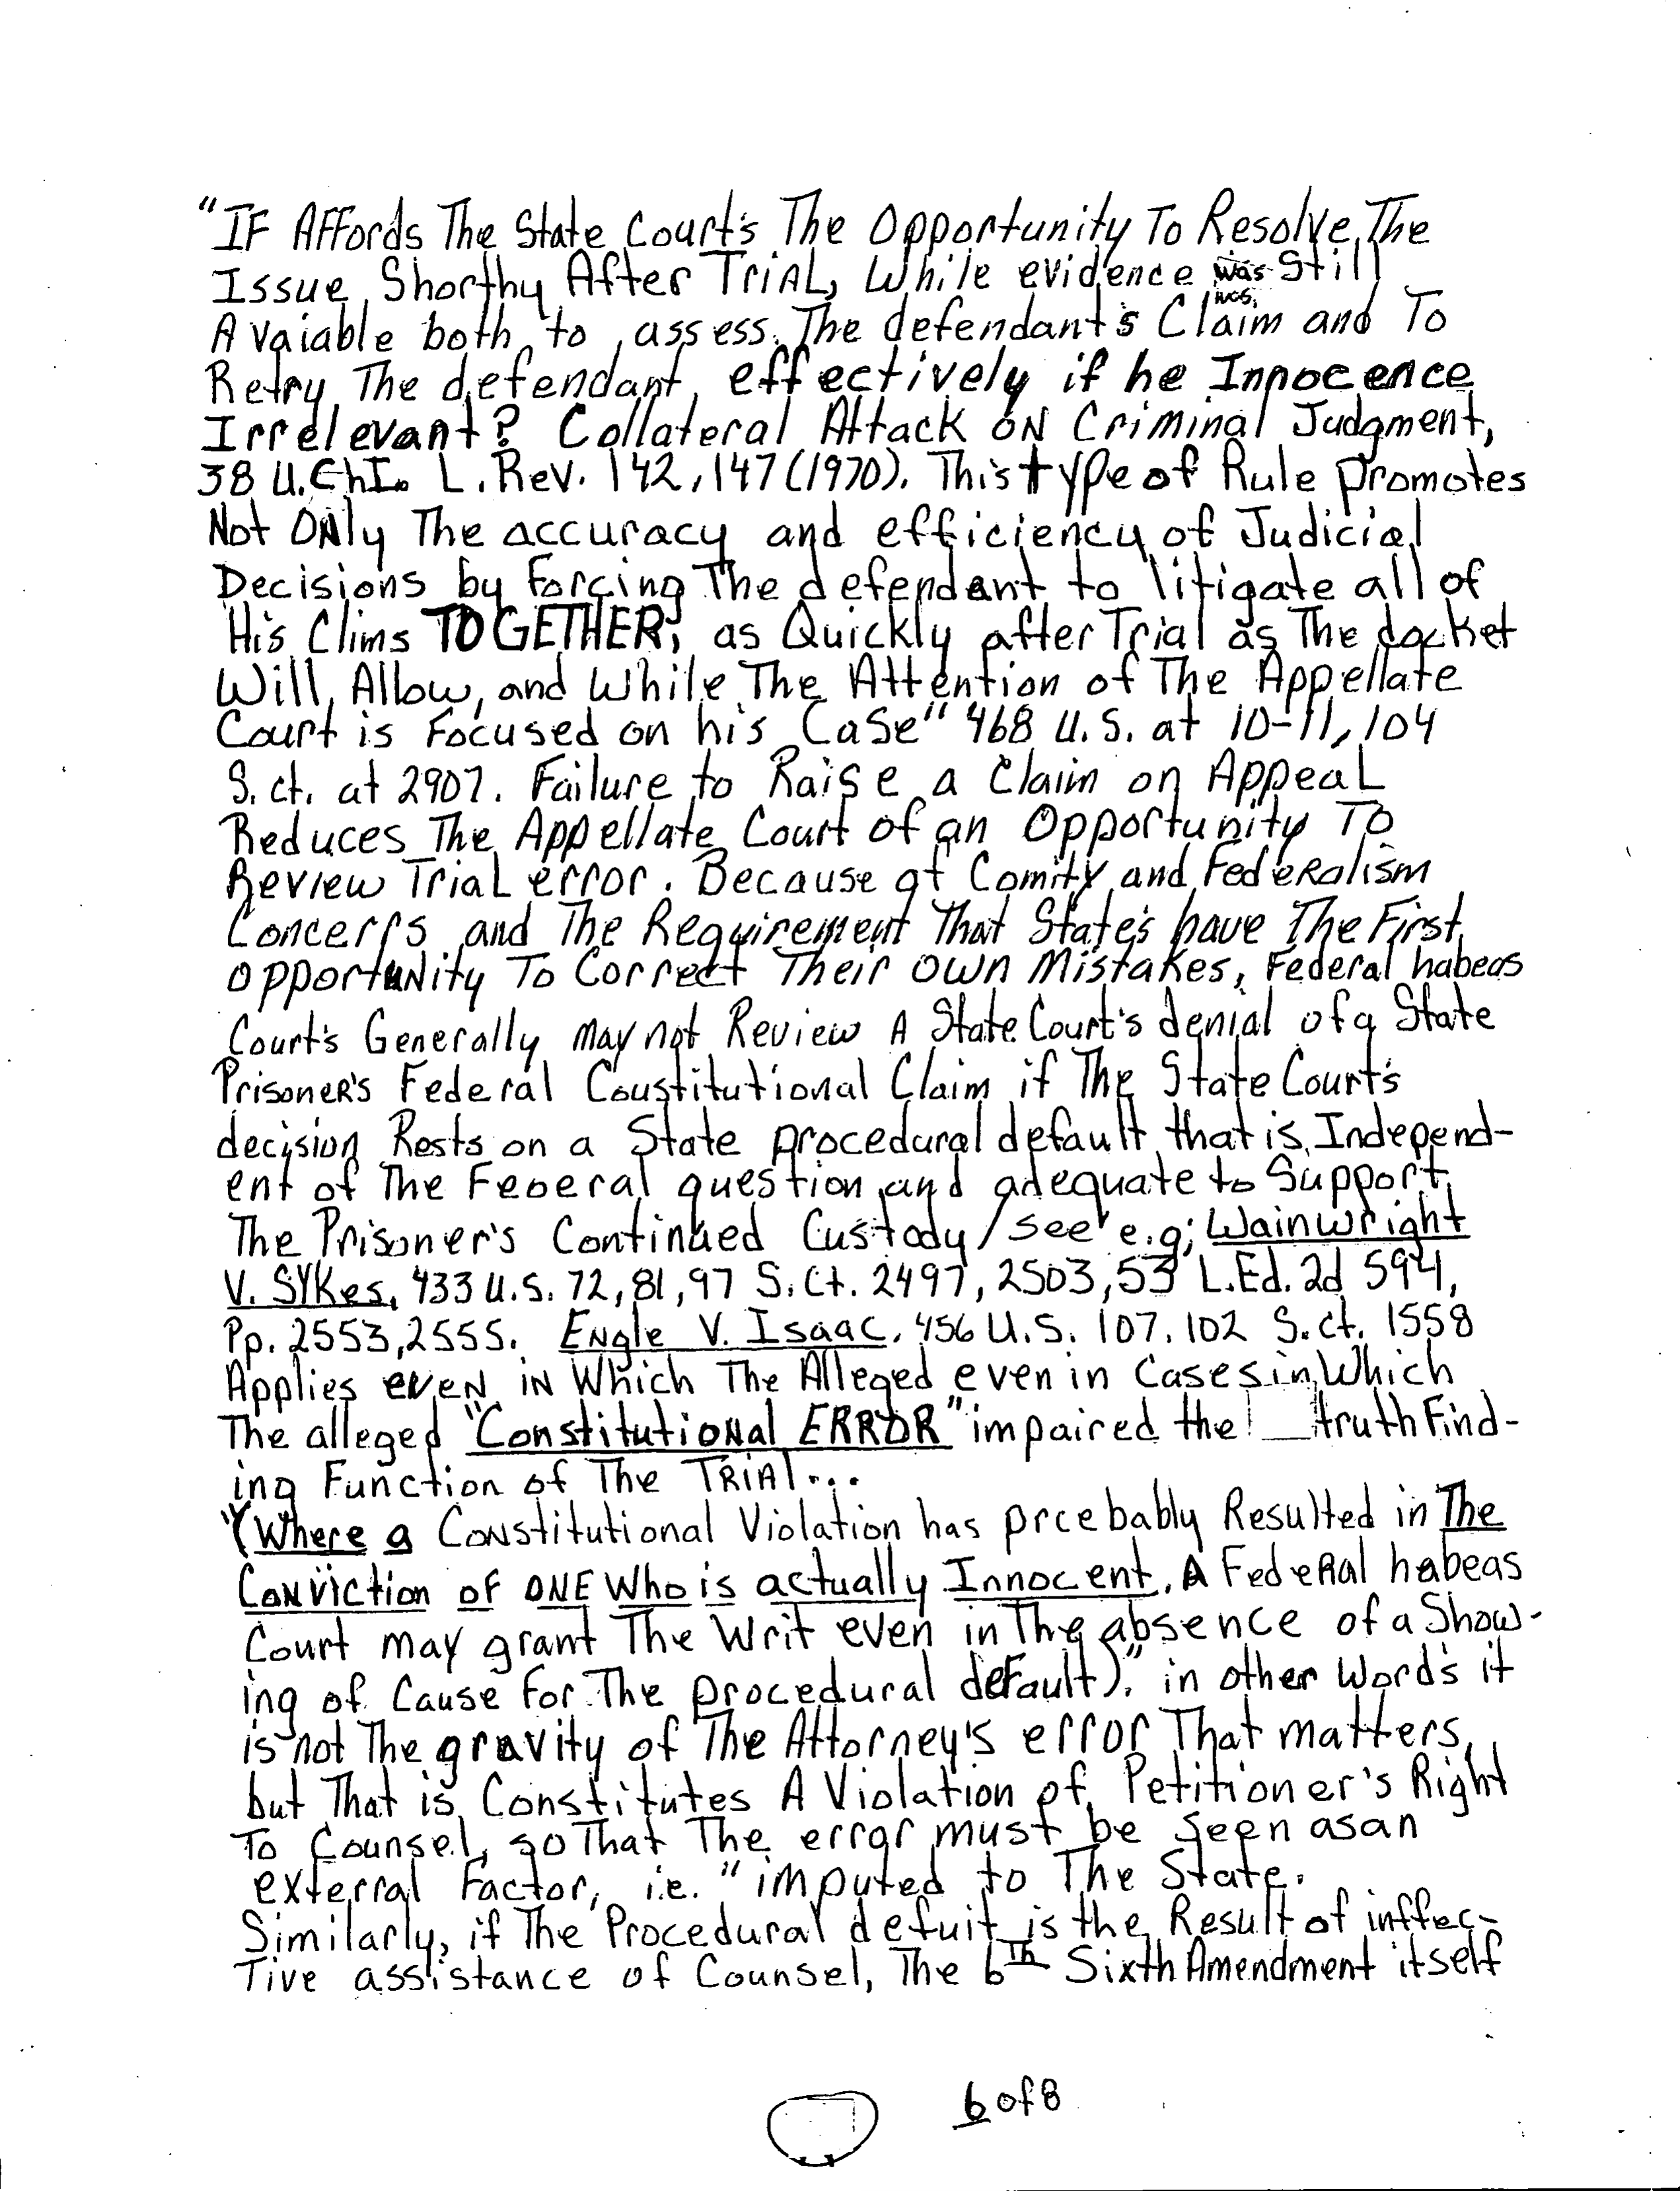 "IF Affords The State Court's The Opportunity To Resolve The
Issue Shorthy After TriAL, While evidence was Still
Avaiable both to assess The defendant's Claim and To
Retry The defendant effectively if he Innocence
Irrelevant? Collateral Attack ON Criminal Judgment,
38 U.ChI. L. Rev. 142, 147 (1970). This type of Rule promotes
Not ONly The accuracy and efficiency of Judicial
Decisions by Forcing The defendant to litigate all of
His Clims TOGETHER, as Quickly after Trial as The docket
Will Allow, and While The Attention of The Appellate
Court is Focused on his Case" 468 U.S. at 10-11, 104
S. Ct. at 2907. Failure to Raise a Claim on AppeaL
Reduces The Appellate Court of an Opportunity To
Review TriaL error. Because of Comity and FedeRalism
Concerrs and The Requirement That State's have The First
opportuNity To Correct Their Own Mistakes, Federal habeas
Court's Generally may not Review A State Court's denial of a State
Prisoner's Federal Coustitutional Claim if The State Court's
decision Rests on a State procedural default that is Independ-
ent of The Feoeral question and adequate to Support
The Prisoner's Continued Custody / see e.g; Wainwright
V. SYKes, 433 U.S. 72, 81, 97 S. Ct. 2497, 2503, 53 L.Ed. 2d 594,
Pp. 2553,2555. ENgle V. Isaac, 456 U.S. 107. 102 S. ct. 1558
Applies eveN iN Which The Alleged even in Cases in Which
The alleged "ConstitutioNal ERROR" impaired the truth Find-
ing Function of The TRIAl...
"(Where a CoNstitutional Violation has prcebably Resulted in The
CoNViction of ONE Who is actually Innocent, A FedeRal habeas
Court may grant The Writ even in The absence of a Show-
ing of Cause For The procedural deFault)." in other Word's it
is not The gravity of The Attorney's error That matters,
but That is Constitutes A Violation of Petitioner's Right
To Counsel, so That The error must be seen as an
exterral Factor, i.e. "imputed to The State.
Similarly, if The Procedural defuit is the Result of inffec-
Tive assistance of Counsel, The 6Th Sixth Amendment itself
6 of 8